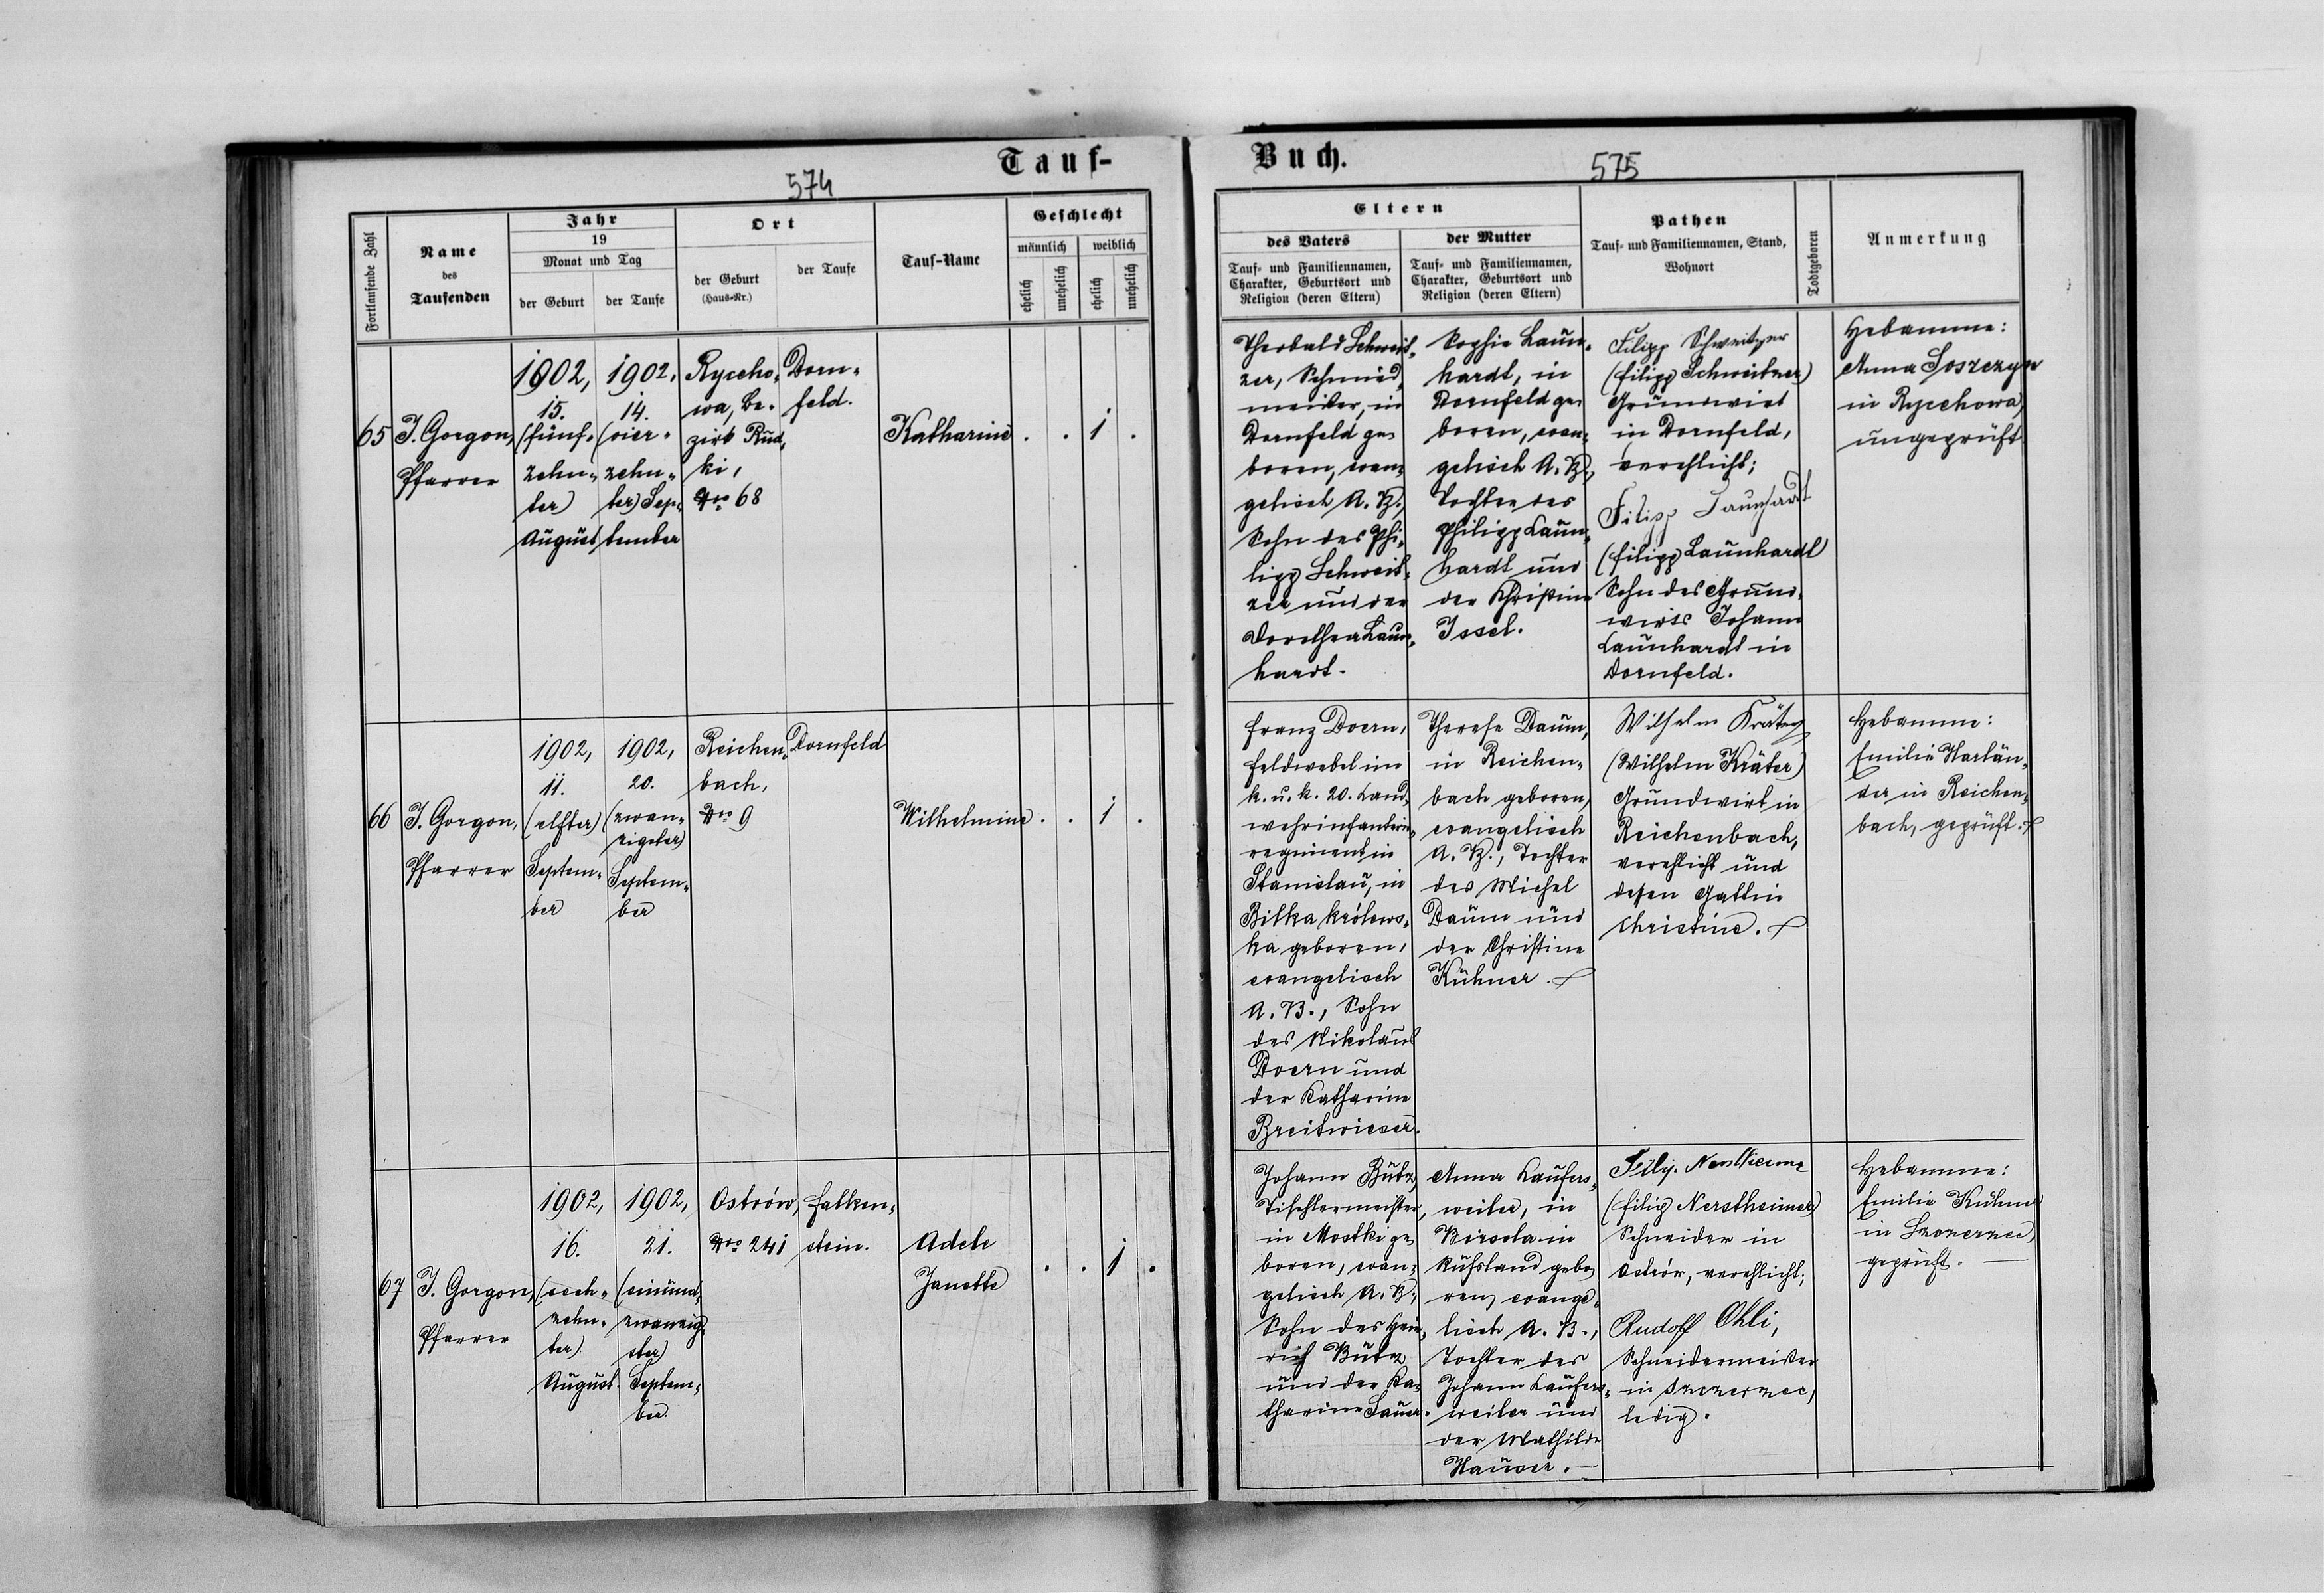 Tauf-
574
Fortlaufende Zahl
Name
des
Taufenden
Jahr
19
Monat und Tag
der Geburt
der Taufe
Ort
der Geburt
(Haus-Nr.)
der Taufe
Tauf-Name
Geschlecht
männlich
weiblich
ehelich
unehelich
ehelich
unehelich
65
J. Gorgon,
Pfarrer
1902,
15.
(fünf-
zehn-
ter)
August
1902,
14.
(vier-
zehn-
ter) Sep-
tember
Ryccho-
wa, Be-
zirk Rud-
ki,
Nro 68
Dorn-
feld.
Katharine
. . 1 .
66
J. Gorgon,
Pfarrer
1902,
11.
(elfter)
Septem-
ber
1902,
20.
(zwan-
zigster)
Septem-
ber
Reichen-
bach,
Nro 9
Dornfeld
Wilhelmine
. . 1 .
67
J. Gorgon,
Pfarrer
1902,
16.
(sech-
zehn-
ter)
August.
1902,
21.
(einund-
zwanzig-
ster)
Septem-
ber.
Ostrów,
Nro 241
Falken-
stein.
Adele
Janette
. . 1 .
Buch.
575
Eltern
des Vaters
Tauf- und Familiennamen,
Charakter, Geburtsort und
Religion (deren Eltern)
der Mutter
Tauf- und Familiennamen,
Charakter, Geburtsort und
Religion (deren Eltern)
Pathen
Tauf- und Familiennamen, Stand,
Wohnort
Todtgeboren
Anmerkung
Theobald Schweit-
zer, Schmied-
meister, in
Dornfeld ge-
boren, evan-
gelisch A. B.,
Sohn des Phi-
lipp Schweit-
zer und der
Dorothea Laun-
hardt.
Sophie Laun-
hardt, in
Dornfeld ge-
boren, evan-
gelisch A. B.,
Tochter des
Philipp Laun-
hardt und
der Christine
Issel.
Filipp Schweitzer
(Filipp Schweitzer)
Grundwirt
in Dornfeld,
verehlicht;
Filipp Launhardt
(Filipp Launhardt)
Sohn des Grund-
wirts Johann
Launhardt in
Dornfeld.
Hebamme:
Anna Soszczyn
in Rycchowa,
ungeprüft
Franz Doern,
Feldwebel im
k. u. k. 20. Land-
wehrinfanterie-
regiment in
Stanislau, in
Bilka królews-
ka geboren,
evangelisch
A. B., Sohn
des Nikolaus
Doern und
der Katharine
Breitwieser.
Therese Daum,
in Reichen-
bach geboren,
evangelisch
A. B., Tochter
des Michel
Daum und
der Christine
Kühner.
Wilhelm Kräter
(Wilhelm Kräter)
Grundwirt in
Reichenbach,
verehlicht und
dessen Gattin
Christine.
Hebamme:
Emilie Harlän-
der in Reichen-
bach, geprüft.
Johann Bütz,
Tischlermeister,
in Mostki ge-
boren, evan-
gelisch A. B.,
Sohn des Hein-
rich Bütz
und der Ka-
tharine Sauer.
Anna Laufers-
weiler, in
Birsola in
Russland gebo-
ren, evange-
lisch A. B.,
Tochter des
Johann Laufers-
weiler und
der Mathilde
Hauser.
Filip Nerstheimer
(Filip Nerstheimer)
Schneider in
Ostrów, verehlicht;
Rudolf Ohli,
Schneidermeister
in Szczerzec,
ledig.
Hebamme:
Emilie Kühner
in Szczerzec,
geprüft.